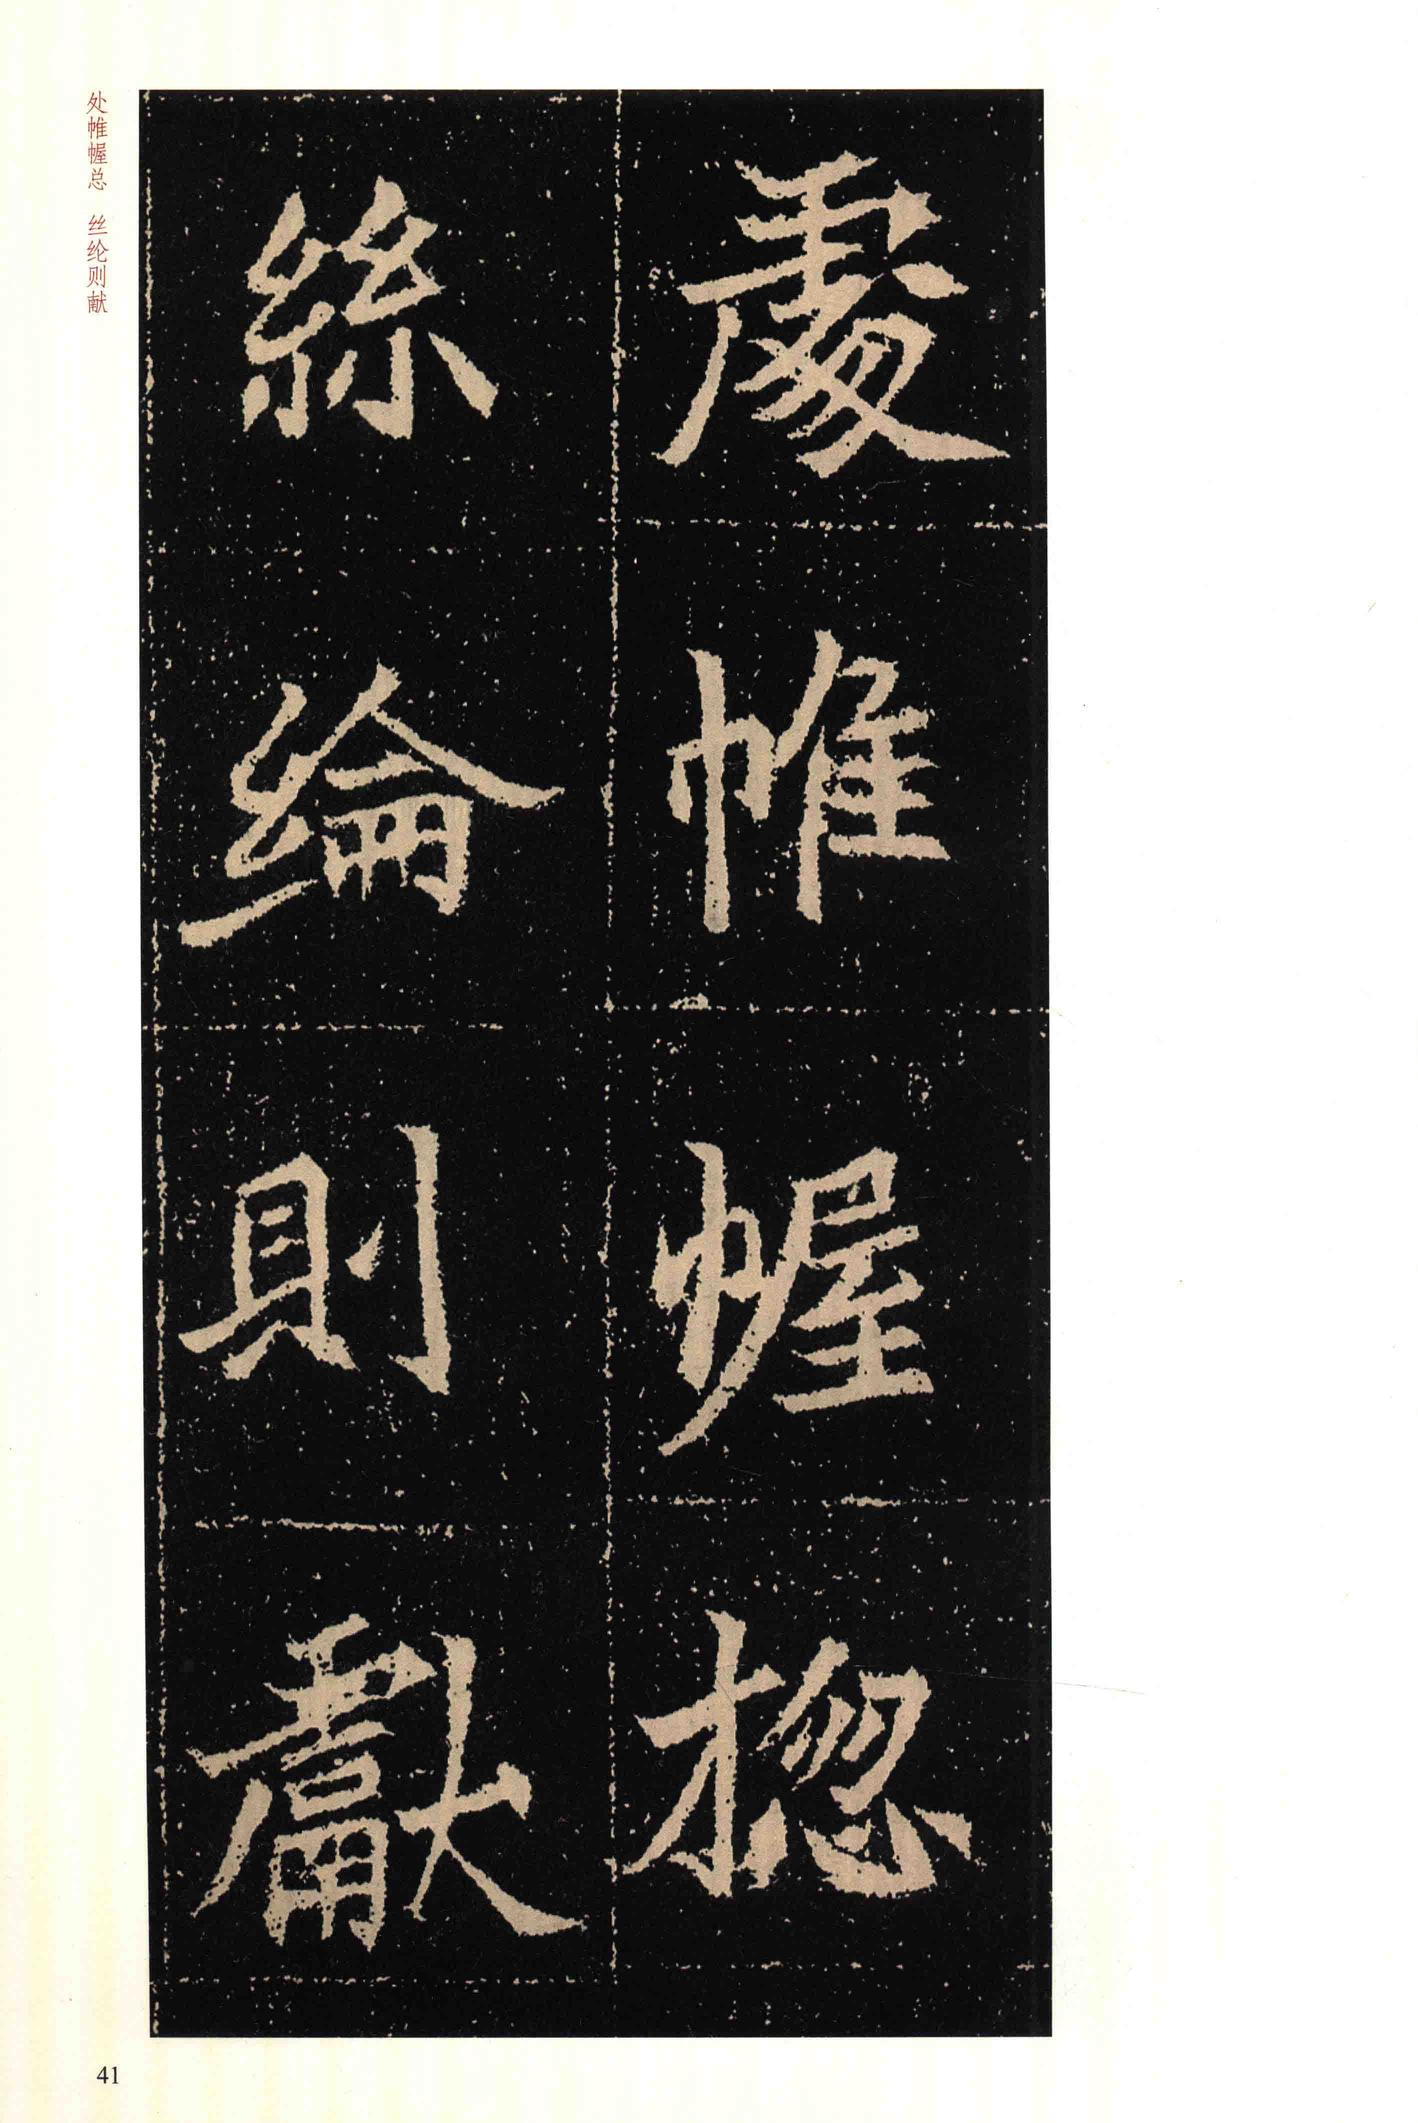 處帷幄揔
絲綸則獻
处帷幄总 丝纶则献
41